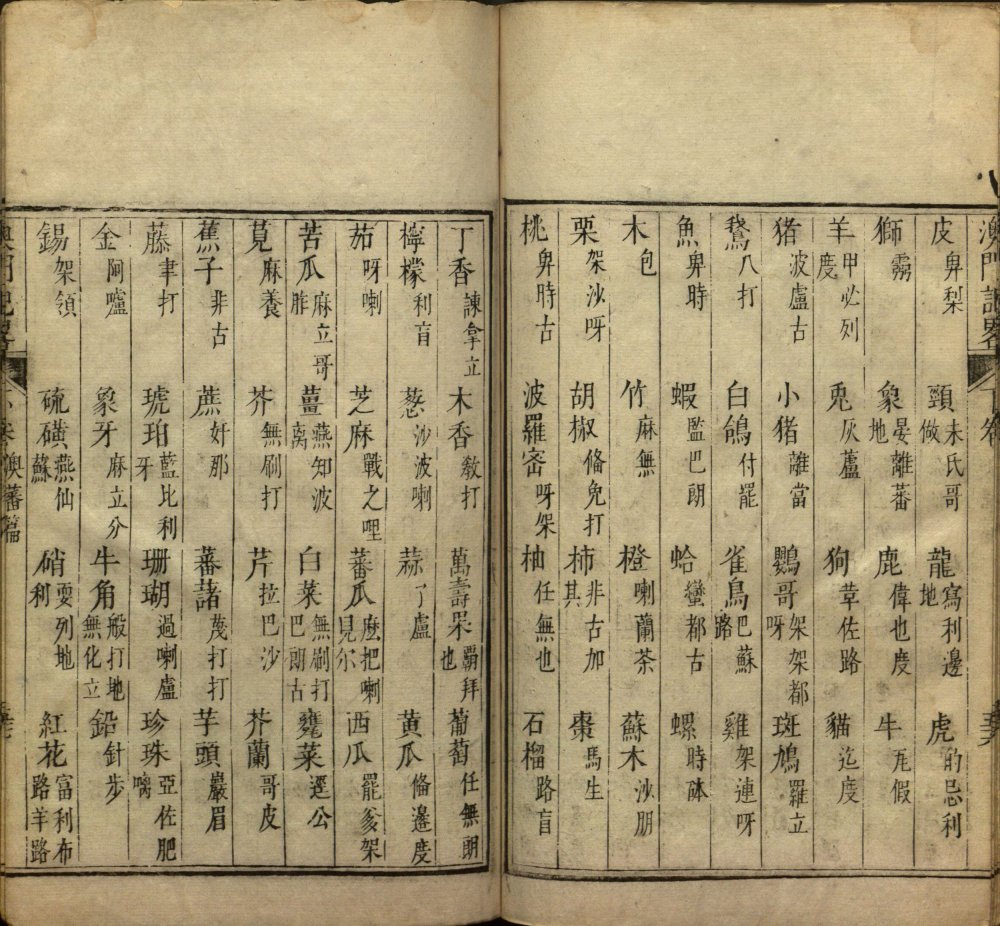 澳門記畧 下卷
皮 卑梨 頸 未氏哥做 龍 寫利邊地 虎 的忌利
獅 霧 象 晏離蕃地 鹿 偉也度 牛 瓦假
羊 甲必列度 兎 灰蘆 狗 革佐路 貓 迄度
猪 波盧古 小猪 離當 鸚哥 架架都呀 斑鳩 羅立
鵞 八打 白鴿 付罷 雀鳥 巴蘇路 雞 架連呀
魚 卑時 蝦 監巴朗 蛤 蠻都古 螺 時砵
木 包 竹 麻無 橙 喇蘭茶 蘇木 沙朋
栗 架沙呀 胡椒 備免打 柿 非古加其 棗 馬生
桃 卑時古 波羅密 呀架 柚 任無也 石榴 路盲
丁香 諫拿立 木香 敎打 萬壽果 覇拜也 葡萄 任無朗
檸檬 利盲 葱 沙波喇 蒜 了盧 黃瓜 備邊度
茄 呀喇 芝麻 戰之哩 蕃瓜 麽把喇見尔 西瓜 罷爹架
苦瓜 麻立哥胙 薑 燕知波离 白菜 無刷打巴朗古 甕菜 逕公
莧 麻養 芥 無刷打 芹 拉巴沙 芥蘭 哥皮
蕉子 非古 蔗 奸那 蕃藷 茂打打 芋頭 嚴眉
藤 聿打 琥珀 藍比利牙 珊瑚 過喇盧 珍珠 亞佐肥嚼
金 阿嚧 象牙 麻立分 牛角 般打地無化立 鉛 針步
錫 架領 硫磺 燕仙蘇 硝 耍列地利 紅花 富利布路羊路
澳門記畧 下卷 澳蕃篇